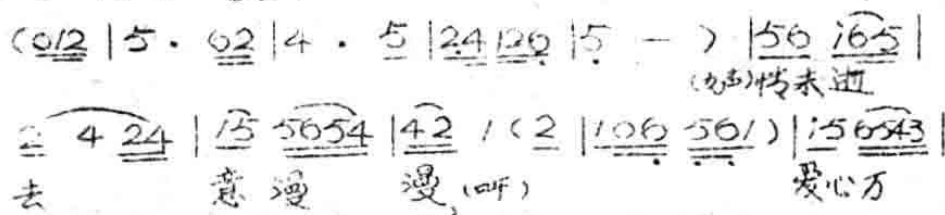 (012 | 5 · 02 | 4 · 5 | 24 126 | 5 — ) | 56 i65 |
情未逝
2 4 24 | 15 5654 | 42 1 (2 | 106 561) | i5 6543 |
去 意漫 漫,(吖) 爱心万